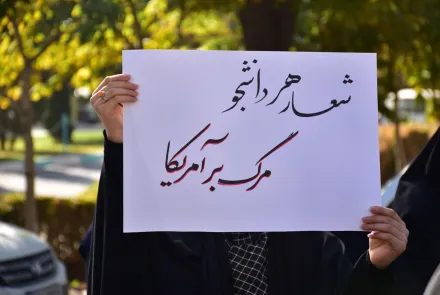 شعار هر دانشجو
مرگ بر آمریکا